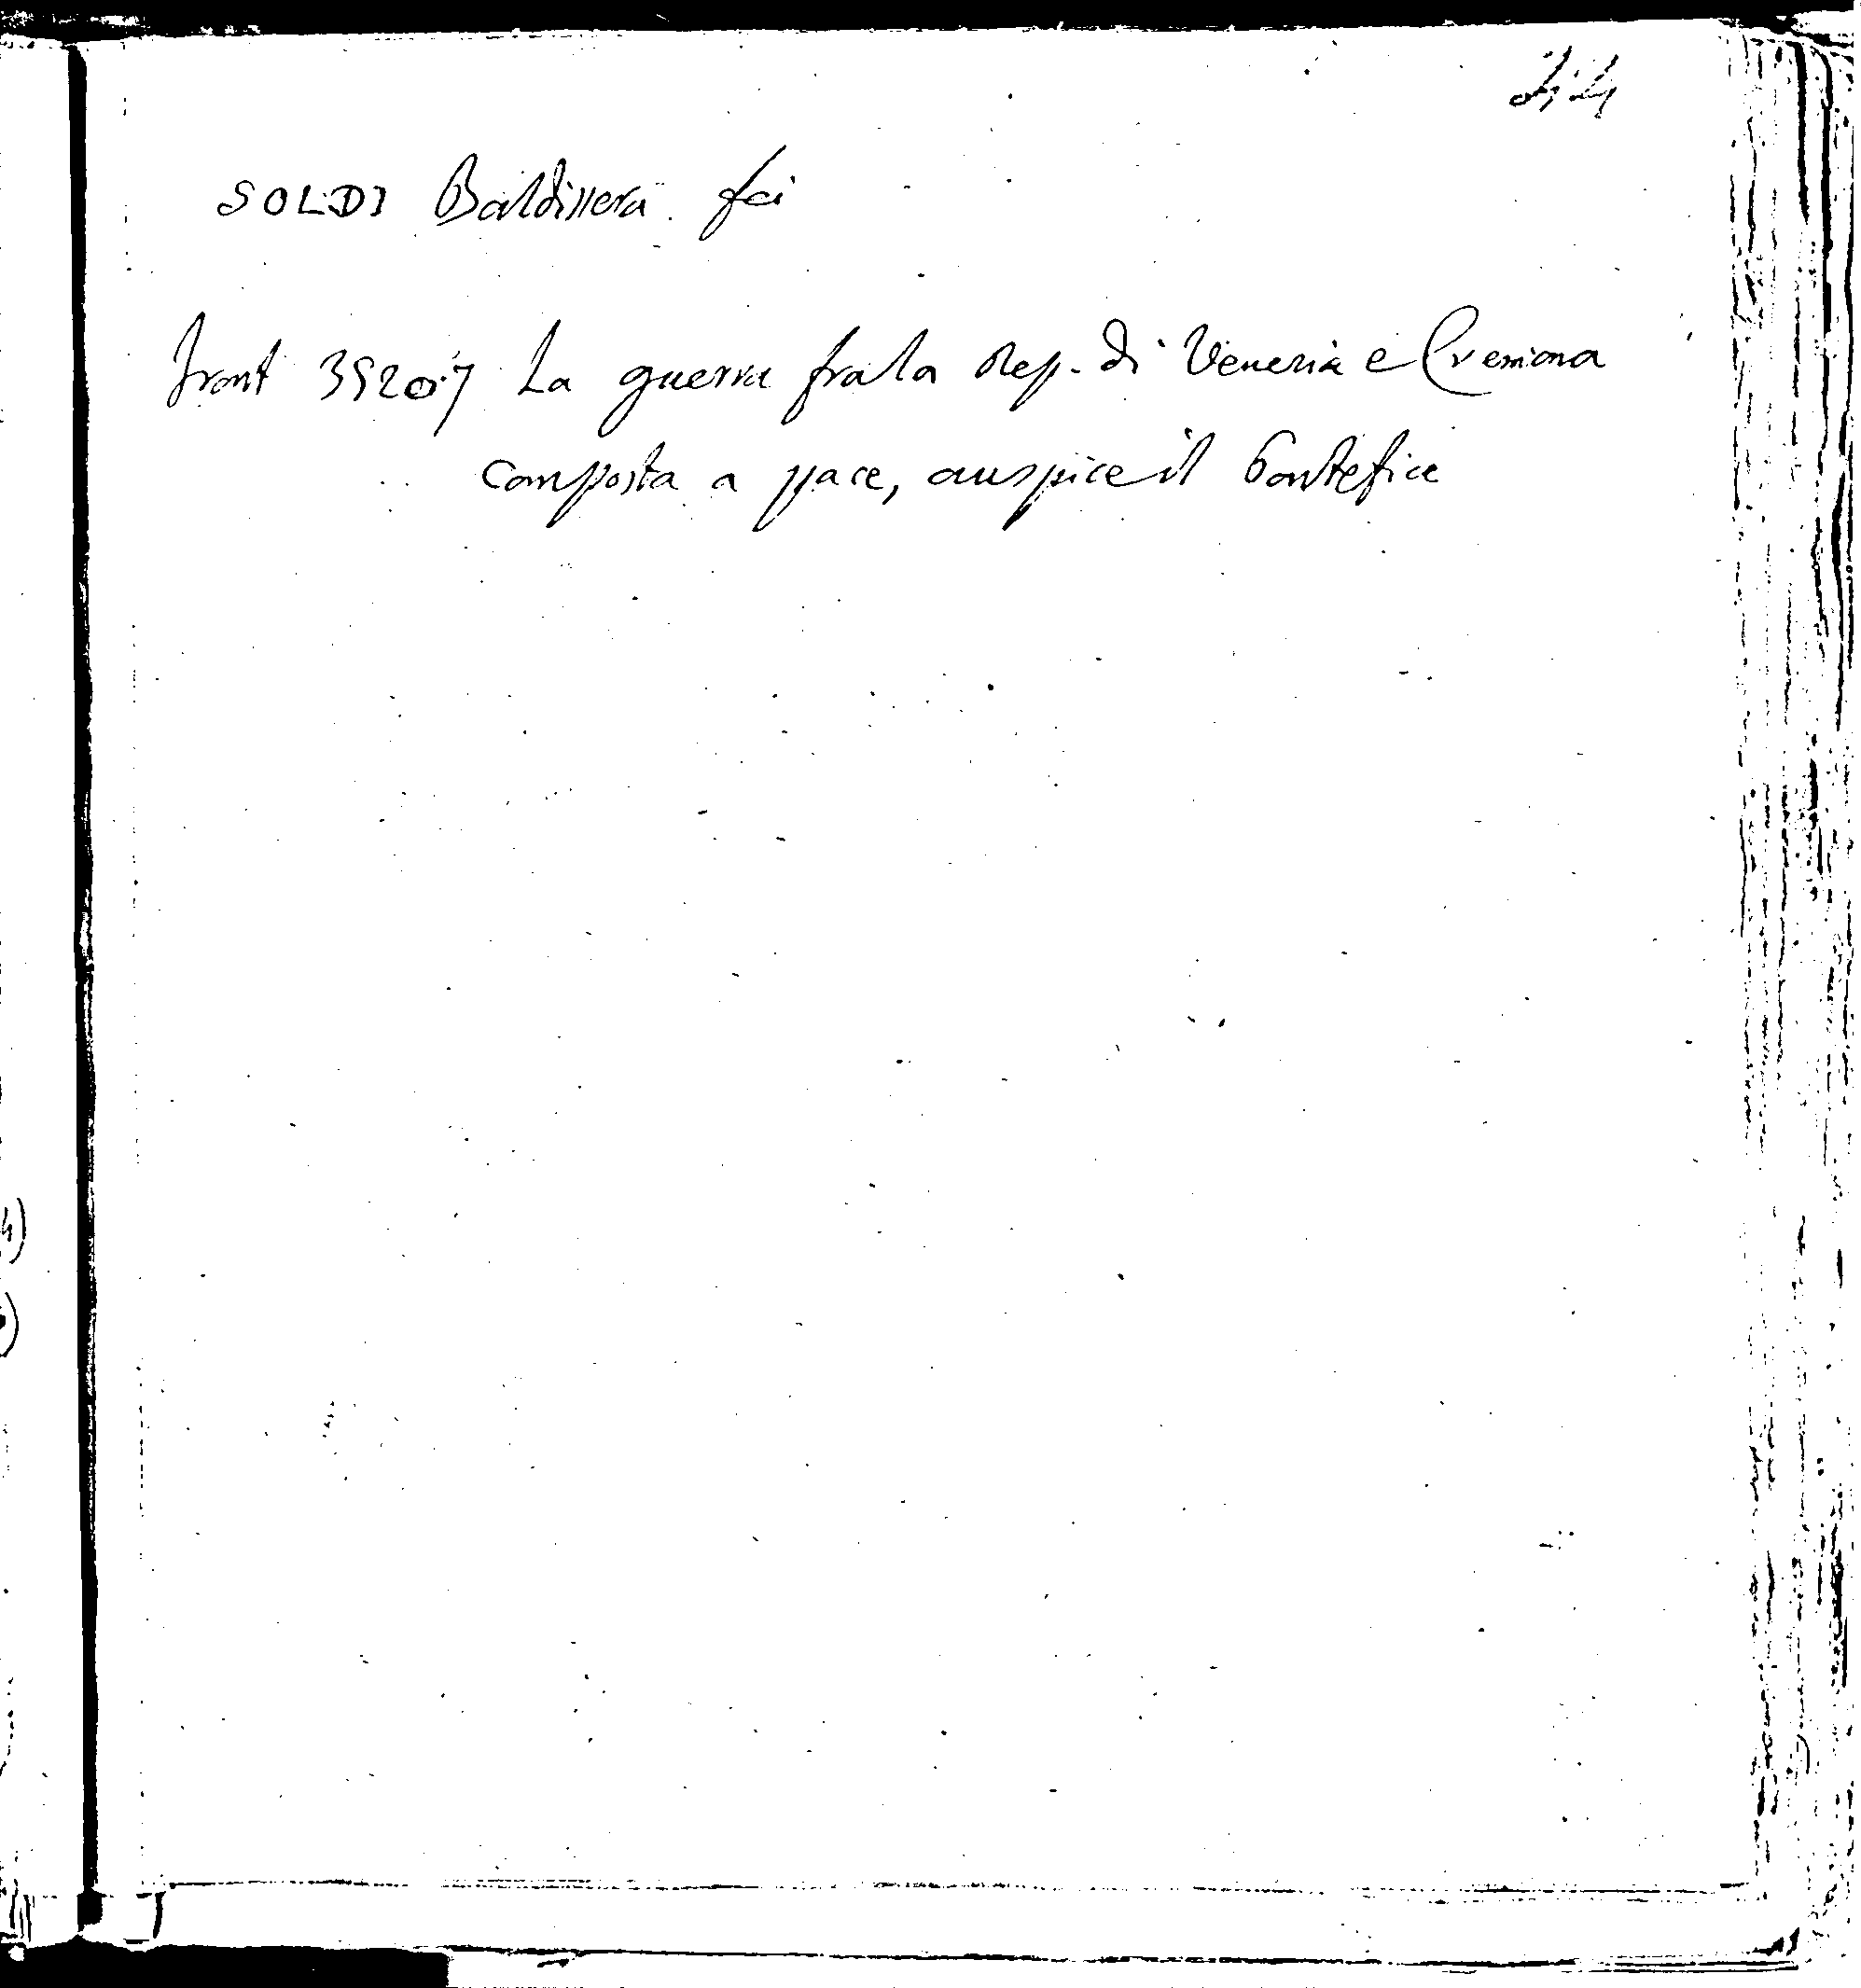 SOLDI Baldissera fei
front 35207 La guerra fra la Rep. di Venezia e Cremona
composta a pace, auspice il Pontefice